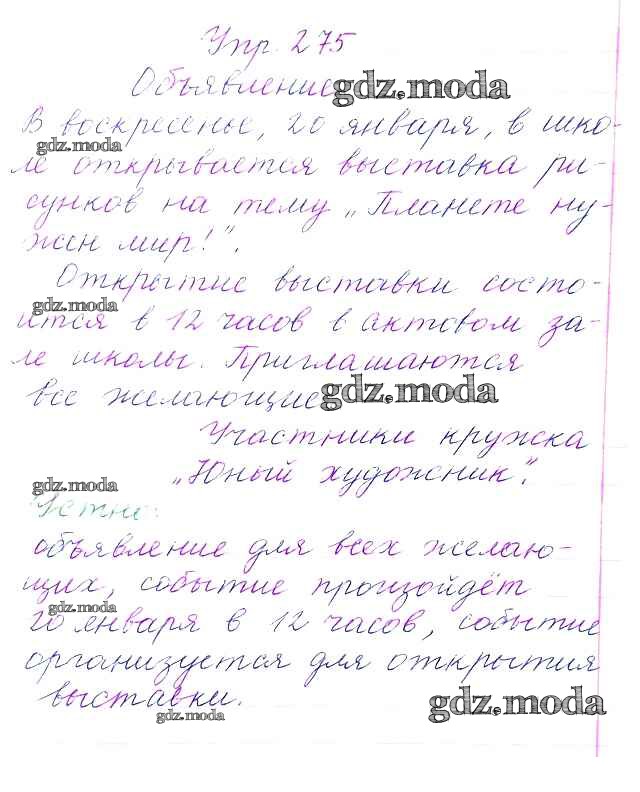 Упр. 275
Объявление
gdz.moda
В воскресенье, 20 января, в шко-
gdz.moda
ле открывается выставка ри-
сунков на тему „Планете ну-
жен мир!".
Открытие выставки состо-
gdz.moda
ится в 12 часов в актовом за-
ле школы. Приглашаются
все желающие
gdz.moda
Участники кружка
„Юный художник".
gdz.moda
Устно:
объявление для всех желаю-
щих, событие произойдёт
gdz.moda
20 января в 12 часов, событие
организуется для открытия
выставки.
gdz.moda
gdz.moda